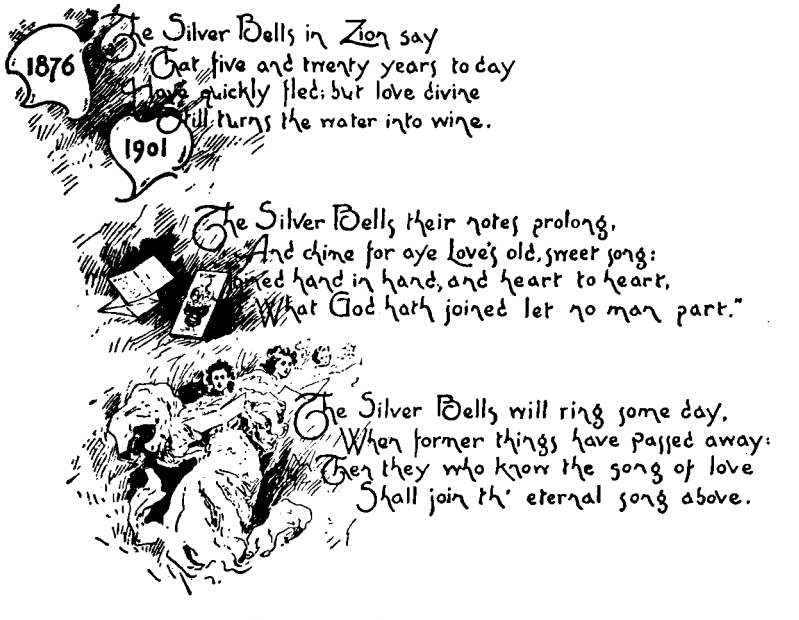 1876
The Silver Bells in Zion say
That five and twenty years to day
Have quickly fled; but love divine
Still turns the water into wine.
1901
The Silver Bells their notes prolong,
And chime for aye Love's old, sweet song:
Joined hand in hand, and heart to heart,
What God hath joined let no man part."
The Silver Bells will ring some day,
When former things have passed away:
Then they who know the song of love
Shall join th' eternal song above.